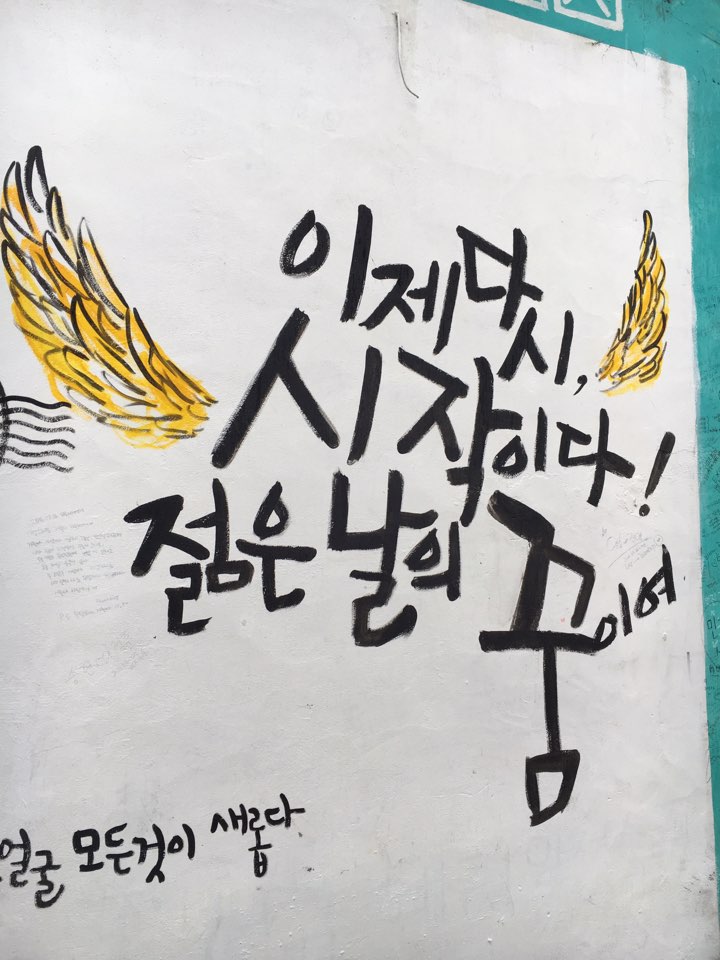 이제다시,
시작이다!
젊은 날의 꿈이여
얼굴 모든것이 새롭다